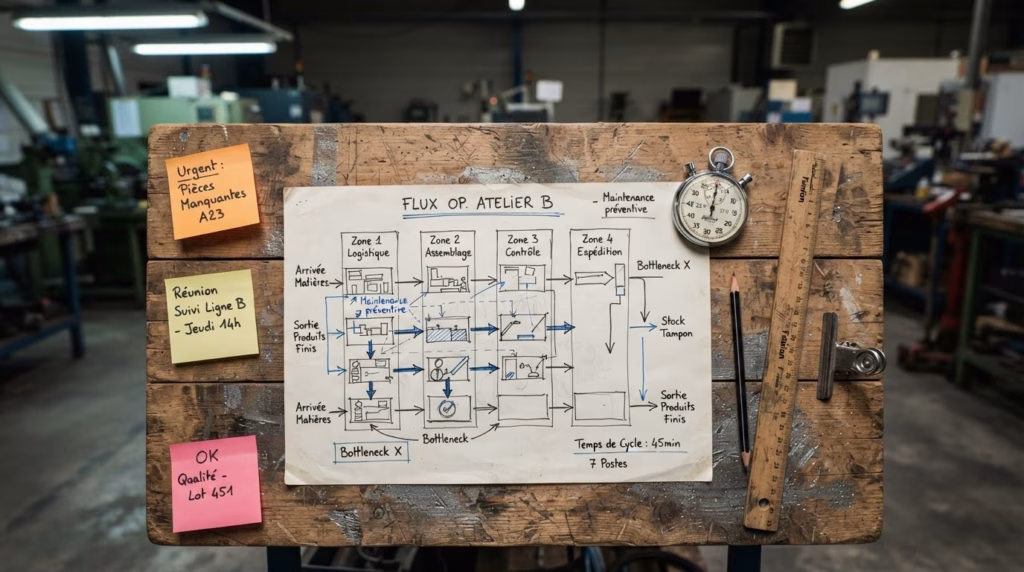 Urgent:
Pièces
Manquantes
A23
Réunion
Suivi Ligne B
- Jeudi 14h
OK
Qualité -
Lot 451
FLUX OP. ATELIER B
- Maintenance
préventive
Zone 1
Logistique
Zone 2
Assemblage
Zone 3
Contrôle
Zone 4
Expédition
Arrivée
Matières
Bottleneck X
Maintenance
préventive
Sortie
Produits
Finis
Stock
Tampon
Arrivée
Matières
Sortie
Produits
Finis
Bottleneck
Bottleneck X
Temps de Cycle : 45min
7 Postes